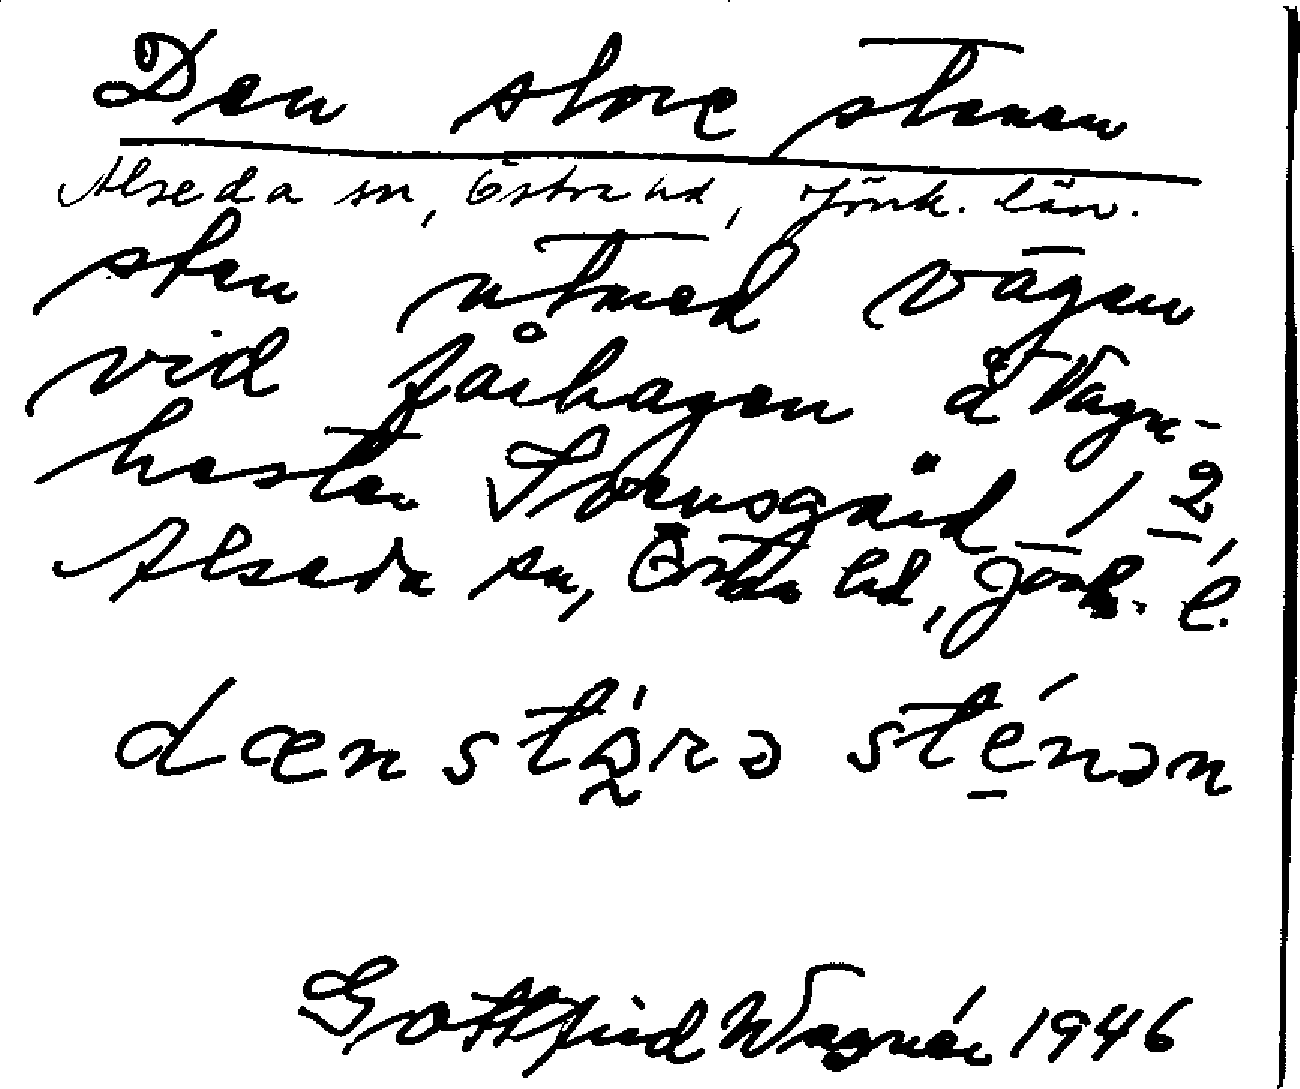 Den store stenen
Alseda sn, Östra hd, Jönk. län.
sten utmed vägen
vid fårhagen å Vagn-
hester Svensgård 1 2,
Alseda sn, Östra hd, Jönk. l.
dæn stǫ́rə sténən
Gottfrid Wagnér 1946